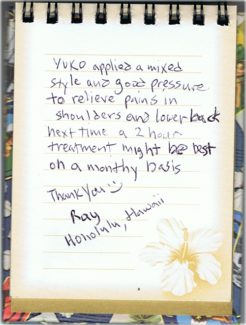 YUKO applied a mixed
style and good pressure
to relieve pains in
shoulders and lower back
next time a 2 hour
treatment might be best
on a monthy basis
Thank You
Ray
Honolulu, Hawaii